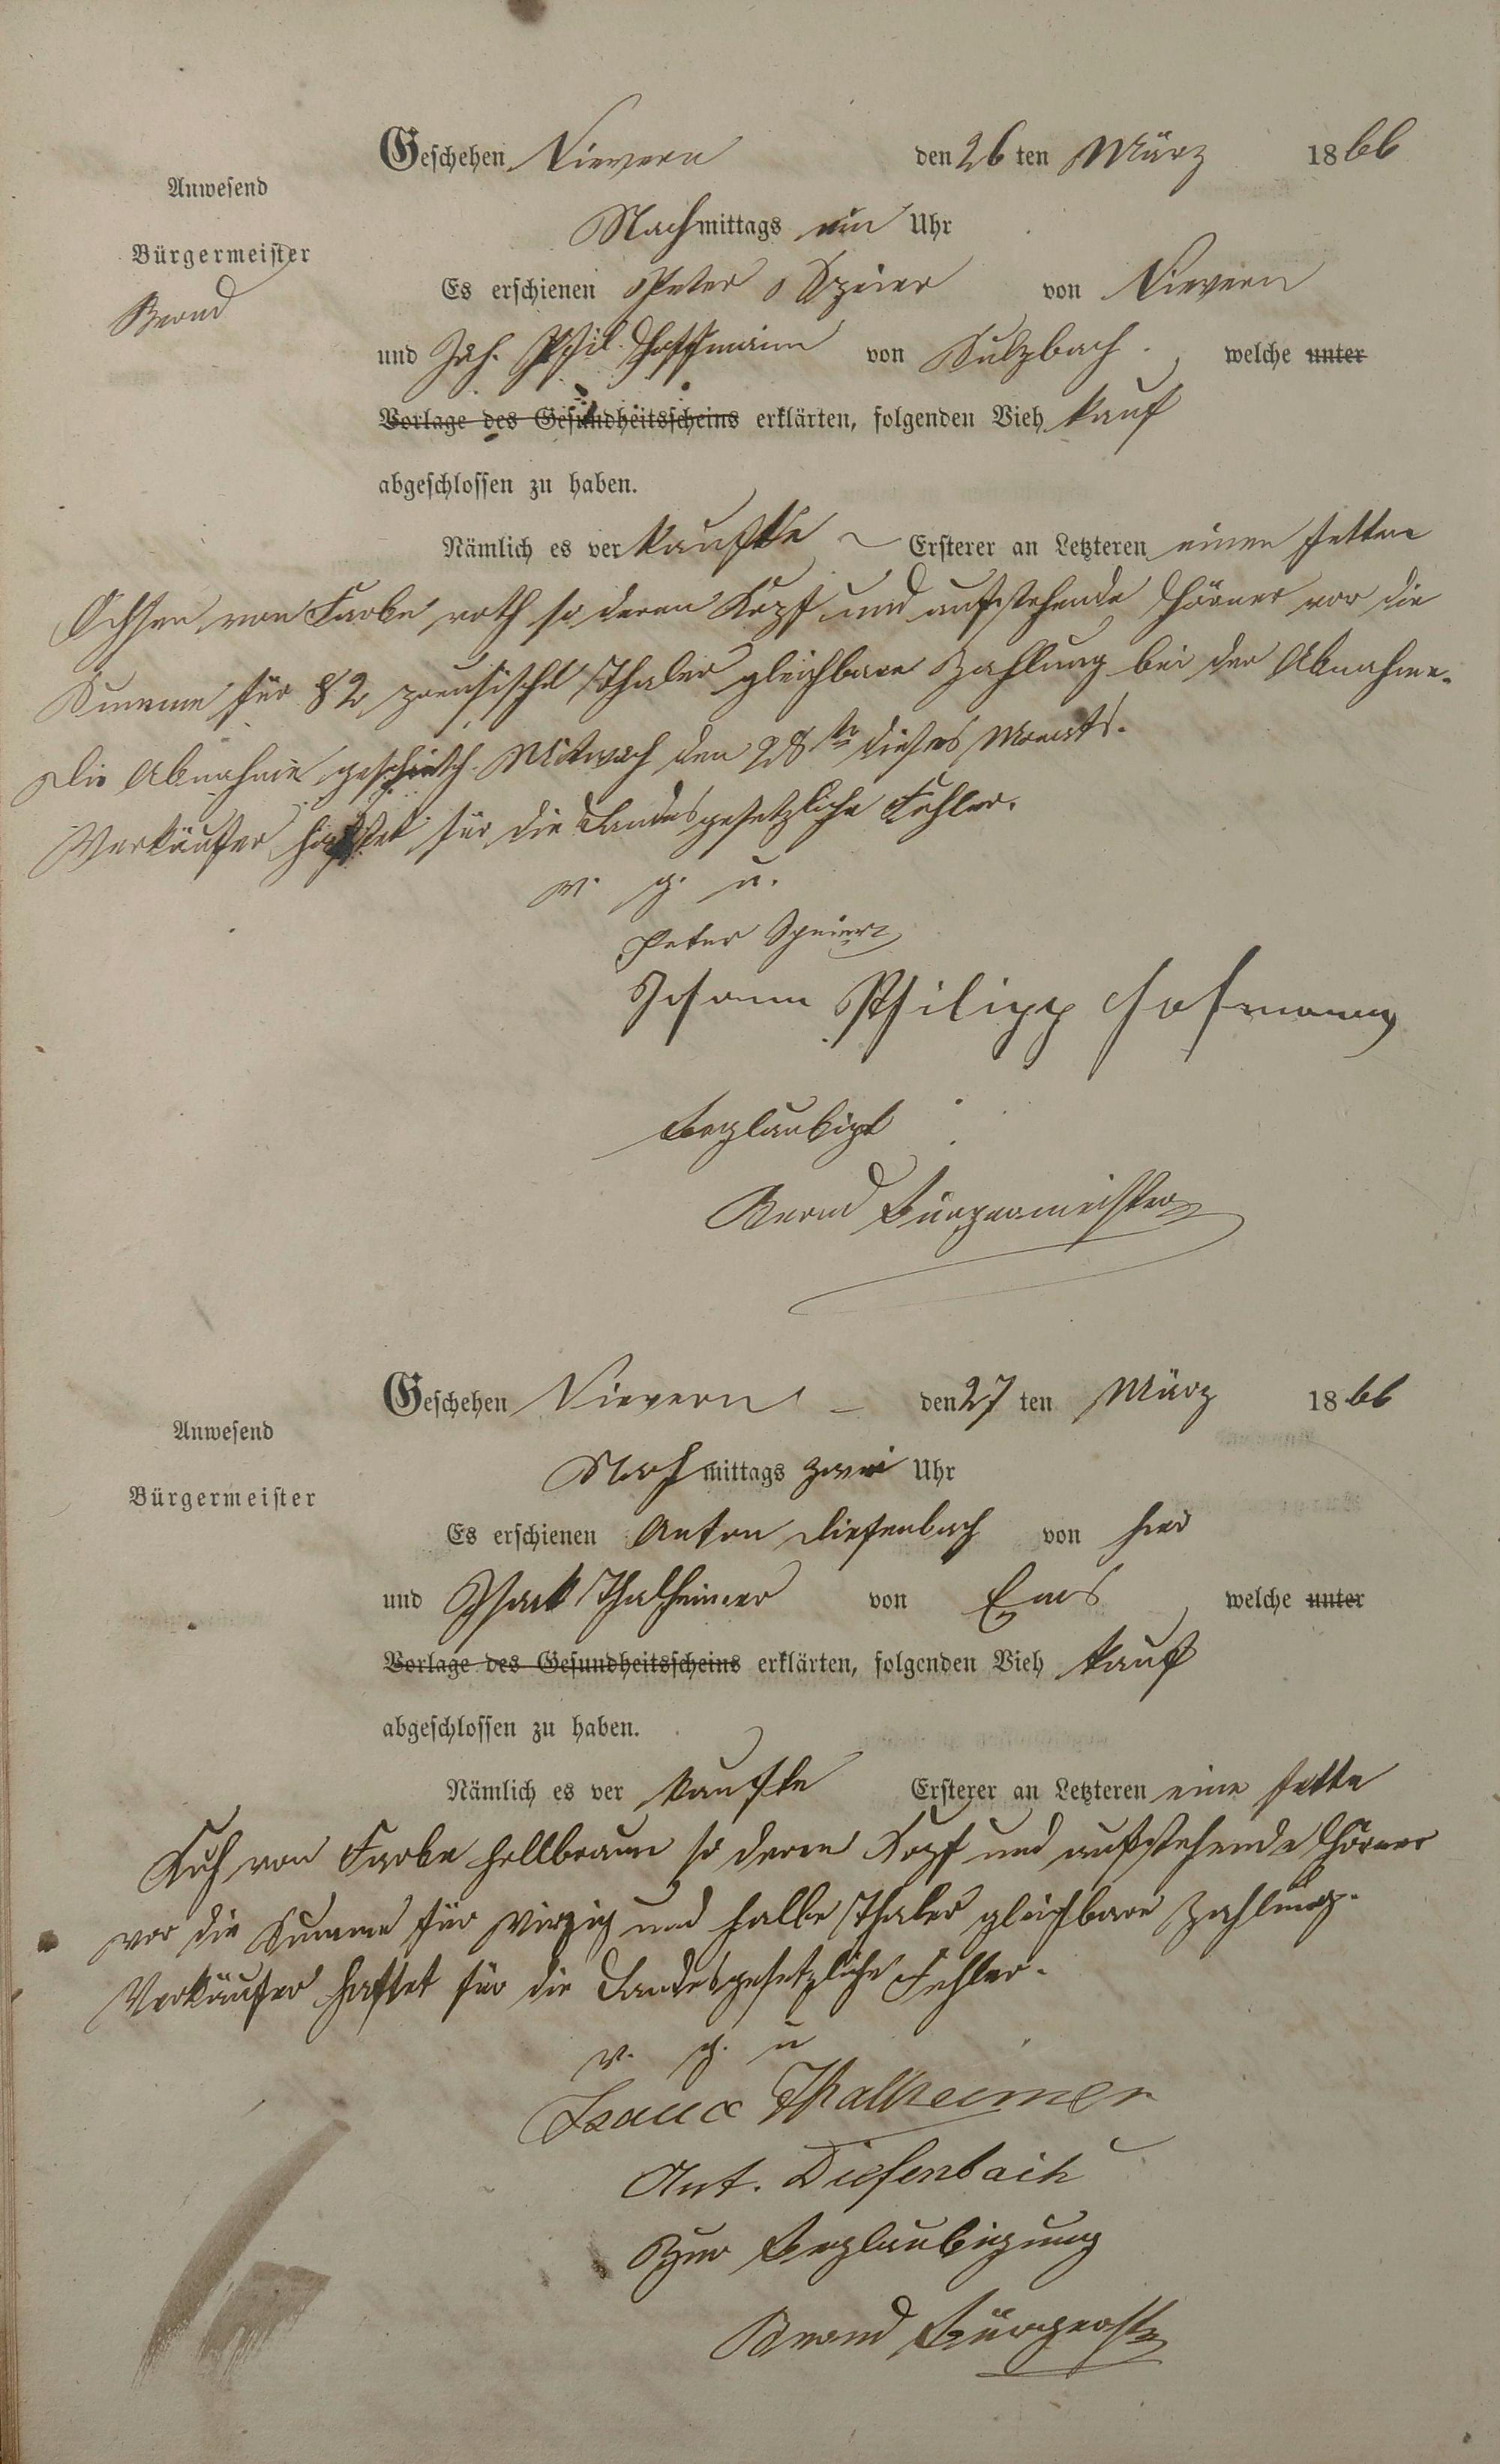 Geschehen Nievern den 26 ten März 1866
Anwesend
Nachmittags ein Uhr
Bürgermeister
Es erschienen Peter Speier von Nievern
Bernd
und Joh. Phil. Hoffmann von Sulzbach, welche unter
Vorlage des Gesundheitsscheins erklärten, folgenden Vieh kauf
abgeschlossen zu haben.
Nämlich es ver kaufte Ersterer an Letzteren einen fetten
Ochsen von Farbe roth so deren Kopf und aufstehende Hörner vor die
Summe für 82 preusische Thaler gleichbare Zahlung bei der Abnahme.
Die Abnahme geschieth Mitwoch den 28ten dieses Monats.
Verkäufer haftet für die Landesgesetzliche Fehler.
v. g. u.
Peter Speier
Johann Philipp Hofmann
Beglaubigt
Bernd Bürgermeister
Geschehen Nievern den 27 ten März 1866
Anwesend
Nachmittags zwei Uhr
Bürgermeister
Es erschienen Anton Diefenbach von hier
und Isaak Thalheimer von Ems, welche unter
Vorlage des Gesundheitsscheins erklärten, folgenden Vieh kauf
abgeschlossen zu haben.
Nämlich es ver kaufte Ersterer an Letzteren eine fette
Kuh von Farbe hellbraun so deren Kopf und aufstehende Hörner
vor die Summe für virzig und halbe Thaler gleichbare Zahlung.
Verkäufer haftet für die Landesgesetzliche Fehler.
v. g. u
Isaac Thalheimer
Ant. Diefenbach
Zur Beglaubigung
Bernd Bürgerstr